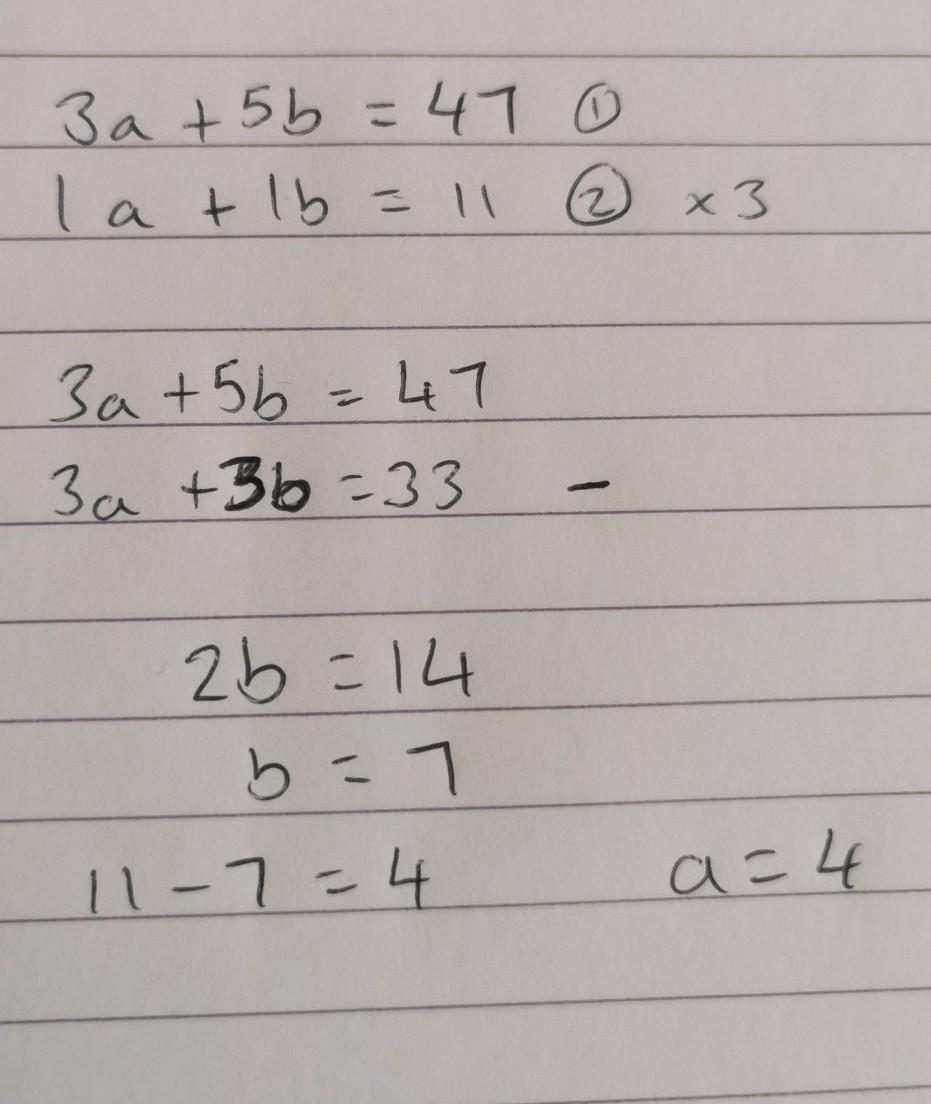 3a + 5b = 47 ①
1a + 1b = 11 ② × 3
3a + 5b = 47
3a + 3b = 33 -
2b = 14
b = 7
11 - 7 = 4 a = 4